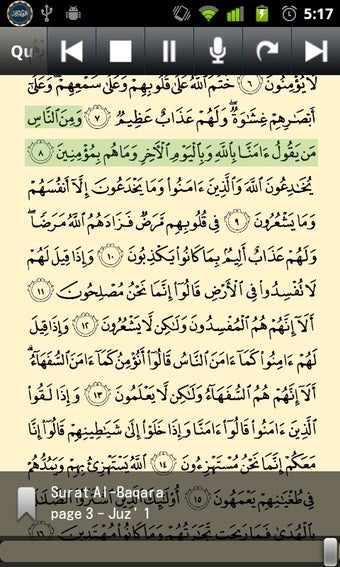 5:17
Qu
لَا يُؤْمِنُونَ ٦ خَتَمَ ٱللَّهُ عَلَىٰ قُلُوبِهِمْ وَعَلَىٰ سَمْعِهِمْ وَعَلَىٰٓ
أَبْصَٰرِهِمْ غِشَٰوَةٌ وَلَهُمْ عَذَابٌ عَظِيمٌ ٧ وَمِنَ ٱلنَّاسِ
مَن يَقُولُ ءَامَنَّا بِٱللَّهِ وَبِٱلْيَوْمِ ٱلْءَاخِرِ وَمَا هُم بِمُؤْمِنِينَ ٨
يُخَٰدِعُونَ ٱللَّهَ وَٱلَّذِينَ ءَامَنُوا۟ وَمَا يَخْدَعُونَ إِلَّآ أَنفُسَهُمْ
وَمَا يَشْعُرُونَ ٩ فِى قُلُوبِهِم مَّرَضٌ فَزَادَهُمُ ٱللَّهُ مَرَضًا
وَلَهُمْ عَذَابٌ أَلِيمٌۢ بِمَا كَانُوا۟ يَكْذِبُونَ ١٠ وَإِذَا قِيلَ لَهُمْ
لَا تُفْسِدُوا۟ فِى ٱلْأَرْضِ قَالُوٓا۟ إِنَّمَا نَحْنُ مُصْلِحُونَ ١١
أَلَآ إِنَّهُمْ هُمُ ٱلْمُفْسِدُونَ وَلَٰكِن لَّا يَشْعُرُونَ ١٢ وَإِذَا قِيلَ
لَهُمْ ءَامِنُوا۟ كَمَآ ءَامَنَ ٱلنَّاسُ قَالُوٓا۟ أَنُؤْمِنُ كَمَآ ءَامَنَ ٱلسُّفَهَآءُ
أَلَآ إِنَّهُمْ هُمُ ٱلسُّفَهَآءُ وَلَٰكِن لَّا يَعْلَمُونَ ١٣ وَإِذَا لَقُوا۟
ٱلَّذِينَ ءَامَنُوا۟ قَالُوٓا۟ ءَامَنَّا وَإِذَا خَلَوْا۟ إِلَىٰ شَيَٰطِينِهِمْ قَالُوٓا۟ إِنَّا
مَعَكُمْ إِنَّمَا نَحْنُ مُسْتَهْزِءُونَ ١٤ ٱللَّهُ يَسْتَهْزِئُ بِهِمْ وَيَمُدُّهُمْ
فِى طُغْيَٰنِهِمْ يَعْمَهُونَ ١٥ أُو۟لَٰٓئِكَ ٱلَّذِينَ ٱشْتَرَوُا۟ ٱلضَّلَٰلَةَ
بِٱلْهُدَىٰ فَمَا رَبِحَت تِّجَٰرَتُهُمْ وَمَا كَانُوا۟ مُهْتَدِينَ ١٦
Surat Al-Baqara
page 3 - Juz' 1